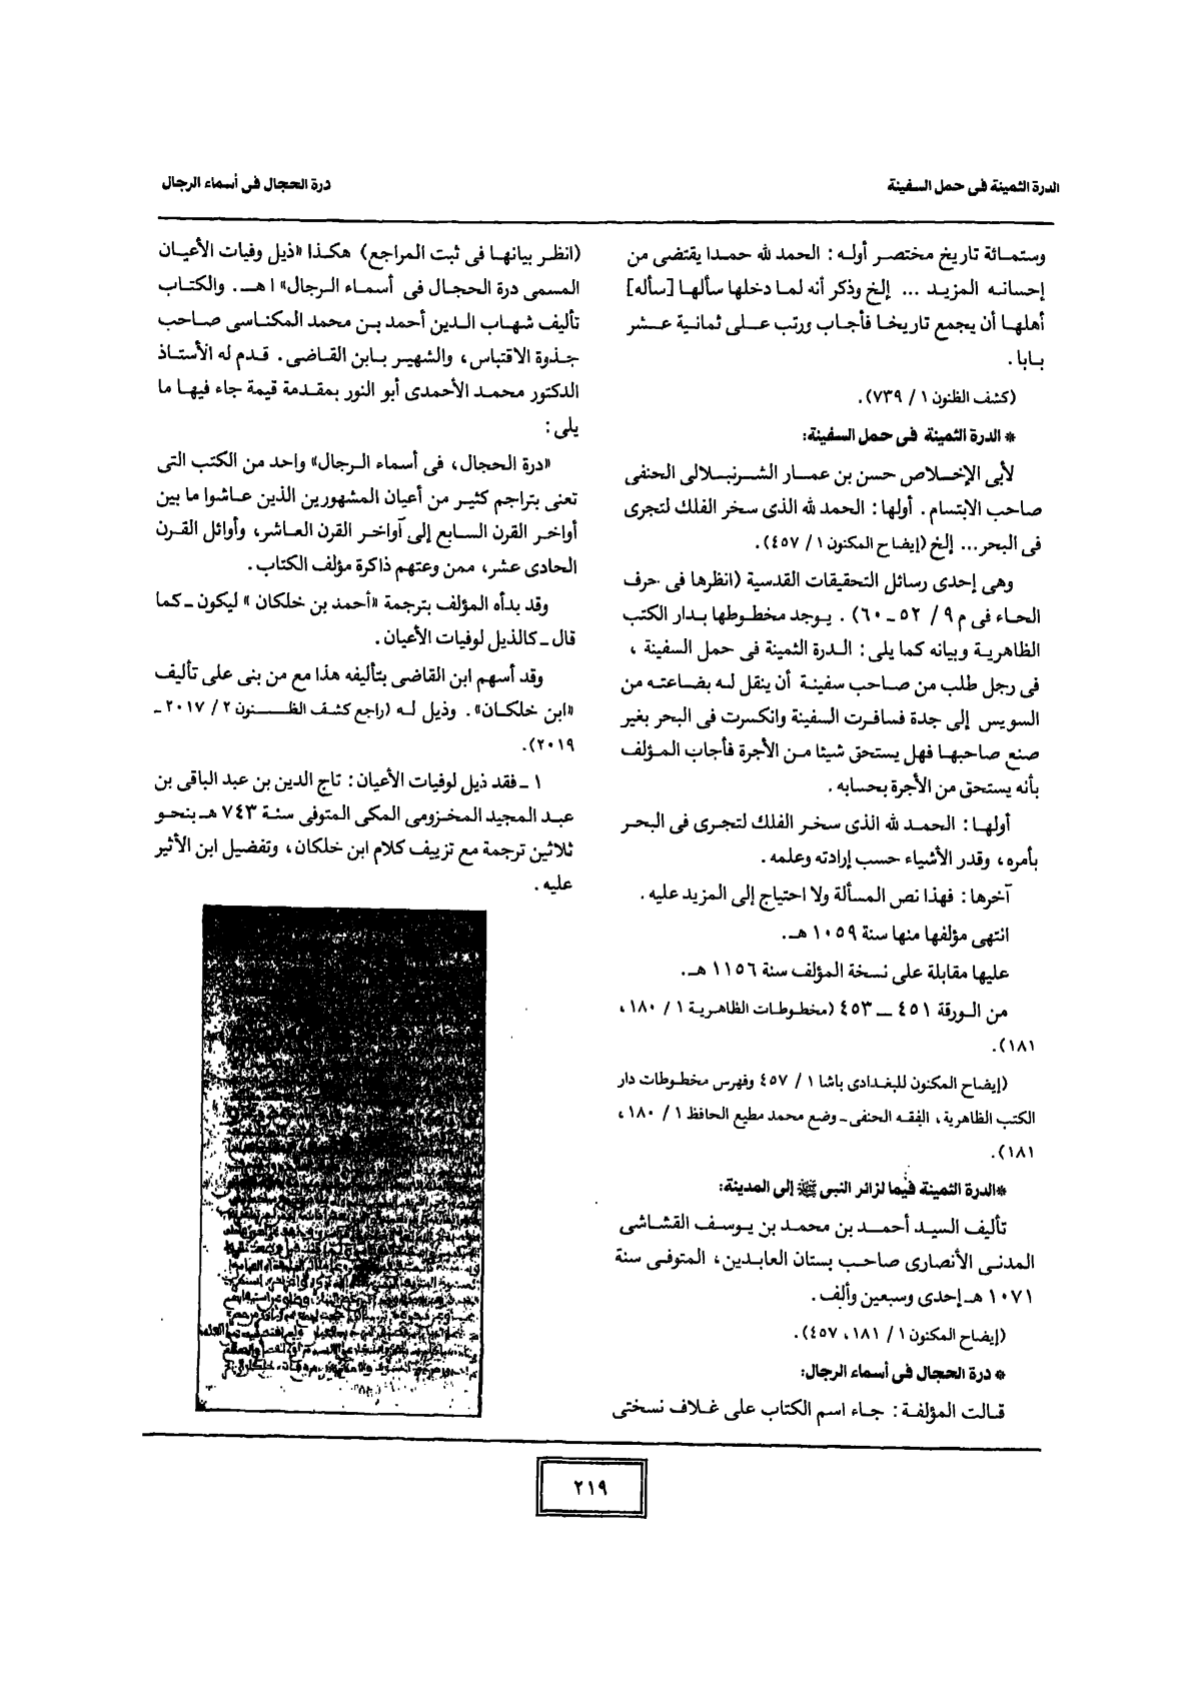 الدرة الثمينة فى حمل السفينة
درة الحجال فى أسماء الرجال
وستمائة تاريخ مختصر أوله : الحمد لله حمدا يقتضى من
إحسانه المزيد ... إلخ وذكر أنه لما دخلها سألها [سأله]
أهلها أن يجمع تاريخا فأجاب ورتب على ثمانية عشر
بابا .
(كشف الظنون ١ / ٧٣٩).
* الدرة الثمينة فى حمل السفينة:
لأبى الإخلاص حسن بن عمار الشرنبلالى الحنفى
صاحب الابتسام . أولها : الحمد لله الذى سخر الفلك لتجرى
فى البحر... إلخ (إيضاح المكنون ١ / ٤٥٧).
وهى إحدى رسائل التحقيقات القدسية (انظرها فى حرف
الحاء فى م ٩ / ٥٢ ـ ٦٠) . يوجد مخطوطها بدار الكتب
الظاهرية وبيانه كما يلى : الدرة الثمينة فى حمل السفينة ،
فى رجل طلب من صاحب سفينة أن ينقل له بضاعته من
السويس إلى جدة فسافرت السفينة وانكسرت فى البحر بغير
صنع صاحبها فهل يستحق شيئا من الأجرة فأجاب المؤلف
بأنه يستحق من الأجرة بحسابه .
أولها : الحمد لله الذى سخر الفلك لتجرى فى البحر
بأمره ، وقدر الأشياء حسب إرادته وعلمه .
آخرها : فهذا نص المسألة ولا احتياج إلى المزيد عليه .
انتهى مؤلفها منها سنة ١٠٥٩ هـ.
عليها مقابلة على نسخة المؤلف سنة ١١٥٦ هـ.
من الورقة ٤٥١ ــ ٤٥٣ (مخطوطات الظاهرية ١ / ١٨٠ ،
١٨١).
(إيضاح المكنون للبغدادى باشا ١ / ٤٥٧ وفهرس مخطوطات دار
الكتب الظاهرية ، الفقه الحنفى ـ وضع محمد مطيع الحافظ ١ / ١٨٠ ،
١٨١).
*الدرة الثمينة فيما لزائر النبى ﷺ إلى المدينة:
تأليف السيد أحمد بن محمد بن يوسف القشاشى
المدنى الأنصارى صاحب بستان العابدين ، المتوفى سنة
١٠٧١ هـ إحدى وسبعين وألف .
(إيضاح المكنون ١ / ١٨١ ، ٤٥٧).
* درة الحجال فى أسماء الرجال:
قالت المؤلفة : جاء اسم الكتاب على غلاف نسختى
(انظر بيانها فى ثبت المراجع) هكذا «ذيل وفيات الأعيان
المسمى درة الحجال فى أسماء الرجال» ا هـ. والكتاب
تأليف شهاب الدين أحمد بن محمد المكناسى صاحب
جذوة الاقتباس ، والشهير بابن القاضى . قدم له الأستاذ
الدكتور محمد الأحمدى أبو النور بمقدمة قيمة جاء فيها ما
يلى :
«درة الحجال ، فى أسماء الرجال» واحد من الكتب التى
تعنى بتراجم كثير من أعيان المشهورين الذين عاشوا ما بين
أواخر القرن السابع إلى أواخر القرن العاشر، وأوائل القرن
الحادى عشر، ممن وعتهم ذاكرة مؤلف الكتاب .
وقد بدأه المؤلف بترجمة «أحمد بن خلكان » ليكون ـ كما
قال ـ كالذيل لوفيات الأعيان .
وقد أسهم ابن القاضى بتأليفه هذا مع من بنى على تأليف
«ابن خلكان» . وذيل له (راجع كشف الظنون ٢ / ٢٠١٧ ـ
٢٠١٩).
١ ـ فقد ذيل لوفيات الأعيان : تاج الدين بن عبد الباقى بن
عبد المجيد المخزومى المكى المتوفى سنة ٧٤٣ هـ بنحو
ثلاثين ترجمة مع تزييف كلام ابن خلكان ، وتفضيل ابن الأثير
عليه .
٢١٩